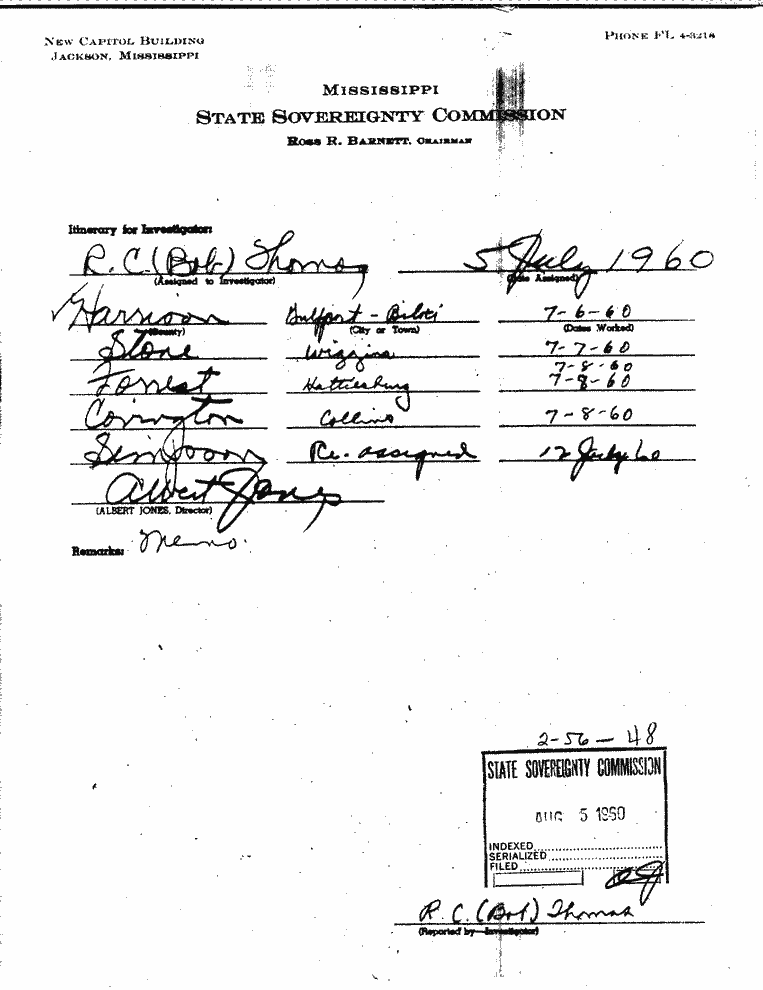 NEW CAPITOL BUILDING
JACKSON, MISSISSIPPI
PHONE FL 4-3218
MISSISSIPPI
STATE SOVEREIGNTY COMMISSION
ROSS R. BARNETT, CHAIRMAN
Itinerary for Investigator:
R. C. (Bob) Thomas 5 July 1960
(Assigned to Investigator) (Date Assigned)
✓ Harrison Gulfport - Biloxi 7-6-60
(County) (City or Town) (Dates Worked)
Stone Wiggins 7-7-60
7-8-60
Forrest Hattiesburg 7-8-60
Covington Collins 7-8-60
Simpson Re-assigned 12 July 60
Albert Jones
(ALBERT JONES, Director)
Remarks: Memo.
2-56-48
STATE SOVEREIGNTY COMMISSION
AUG 5 1960
INDEXED
SERIALIZED
FILED
R. C. (Bob) Thomas
(Reported by—Investigator)